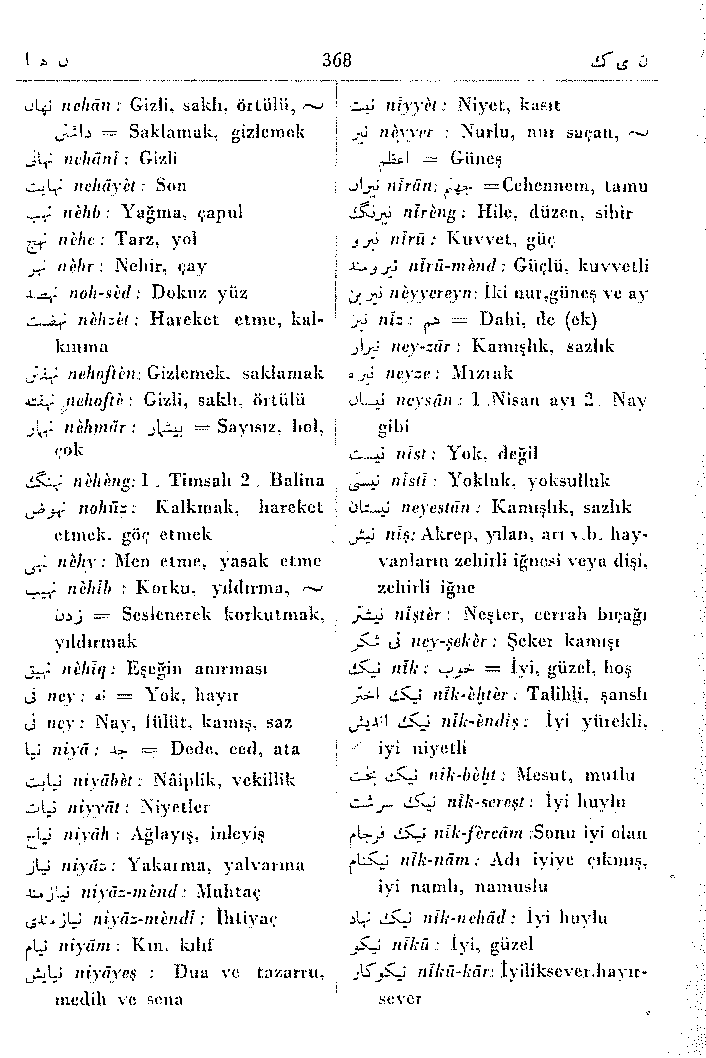 ن ه ا 368 ن ى ك
نهان nehān : Gizli, saklı, örtülü, ~
داشتن = Saklamak, gizlemek
نهانى nehānī : Gizli
نهايت nehāyèt : Son
نهب nèhb : Yağma, çapul
نهج nèhc : Tarz, yol
نهر nèhr : Nehir, çay
نهصد noh-sèd : Dokuz yüz
نهضت nèhzèt : Hareket etme, kal-
kınma
نهفتن nehoftèn: Gizlemek, saklamak
نهفته nehoftè : Gizli, saklı, örtülü
نهمار nèhmār : بيشمار = Sayısız, bol,
çok
نهنگ nèhèng: 1 . Timsah 2 . Balina
نهوض nohūz : Kalkmak, hareket
etmek, göç etmek
نهى nèhy : Men etme, yasak etme
نهيب nèhīb : Korku, yıldırma, ~
زدن = Seslenerek korkutmak,
yıldırmak
نهيق nèhīq : Eşeğin anırması
نى ney : نه = Yok, hayır
نى ney : Nay, fülüt, kamış, saz
نيا niyā : جد = Dede, ced, ata
نيابت niyābèt : Nâiplik, vekillik
نيات niyyāt : Niyetler
نياح niyāh : Ağlayış, inleyiş
نياز niyāz : Yakarma, yalvarma
نيازمند niyāz-mènd : Muhtaç
نيازمندى niyāz-mèndī : İhtiyaç
نيام niyām : Kın, kılıf
نيايش niyāyeş : Dua ve tazarru,
medih ve sena
نيت niyyèt : Niyet, kasıt
نير nèyyer : Nurlu, nur saçan, ~
اعظم = Güneş
نيران nīrān: جهنم =Cehennem, tamu
نيرنگ nīrèng : Hile, düzen, sihir
نيرو nīrū : Kuvvet, güç
نيرومند nīrū-mènd : Güçlü, kuvvetli
نيرين nèyyereyn: İki nur,güneş ve ay
نيز nīz : هم = Dahi, de (ek)
نيزار ney-zār : Kamışlık, sazlık
نيزه neyze : Mızrak
نيسان neysān : 1 .Nisan ayı 2. Nay
gibi
نيست nīst : Yok, değil
نيستى nīstī : Yokluk, yoksulluk
نيستان neyestān : Kamışlık, sazlık
نيش nīş: Akrep, yılan, arı v.b. hay-
vanların zehirli iğnesi veya dişi,
zehirli iğne
نيشتر nīştèr : Neşter, cerrah bıçağı
نى شكر ney-şekèr : Şeker kamışı
نيك nīk : خوب = İyi, güzel, hoş
نيك اختر nīk-èhtèr : Talihli, şanslı
نيك انديش nīk-èndīş : İyi yürekli,
iyi niyetli
نيك بخت nīk-bèht : Mesut, mutlu
نيك سرشت nīk-sereşt : İyi huylu
نيك فرجام nīk-fèrcām :Sonu iyi olan
نيكنام nīk-nām : Adı iyiye çıkmış,
iyi namlı, namuslu
نيك نهاد nīk-nehād : İyi huylu
نيكو nīkū : İyi, güzel
نيكوكار nīkū-kār: İyiliksever,hayır-
sever